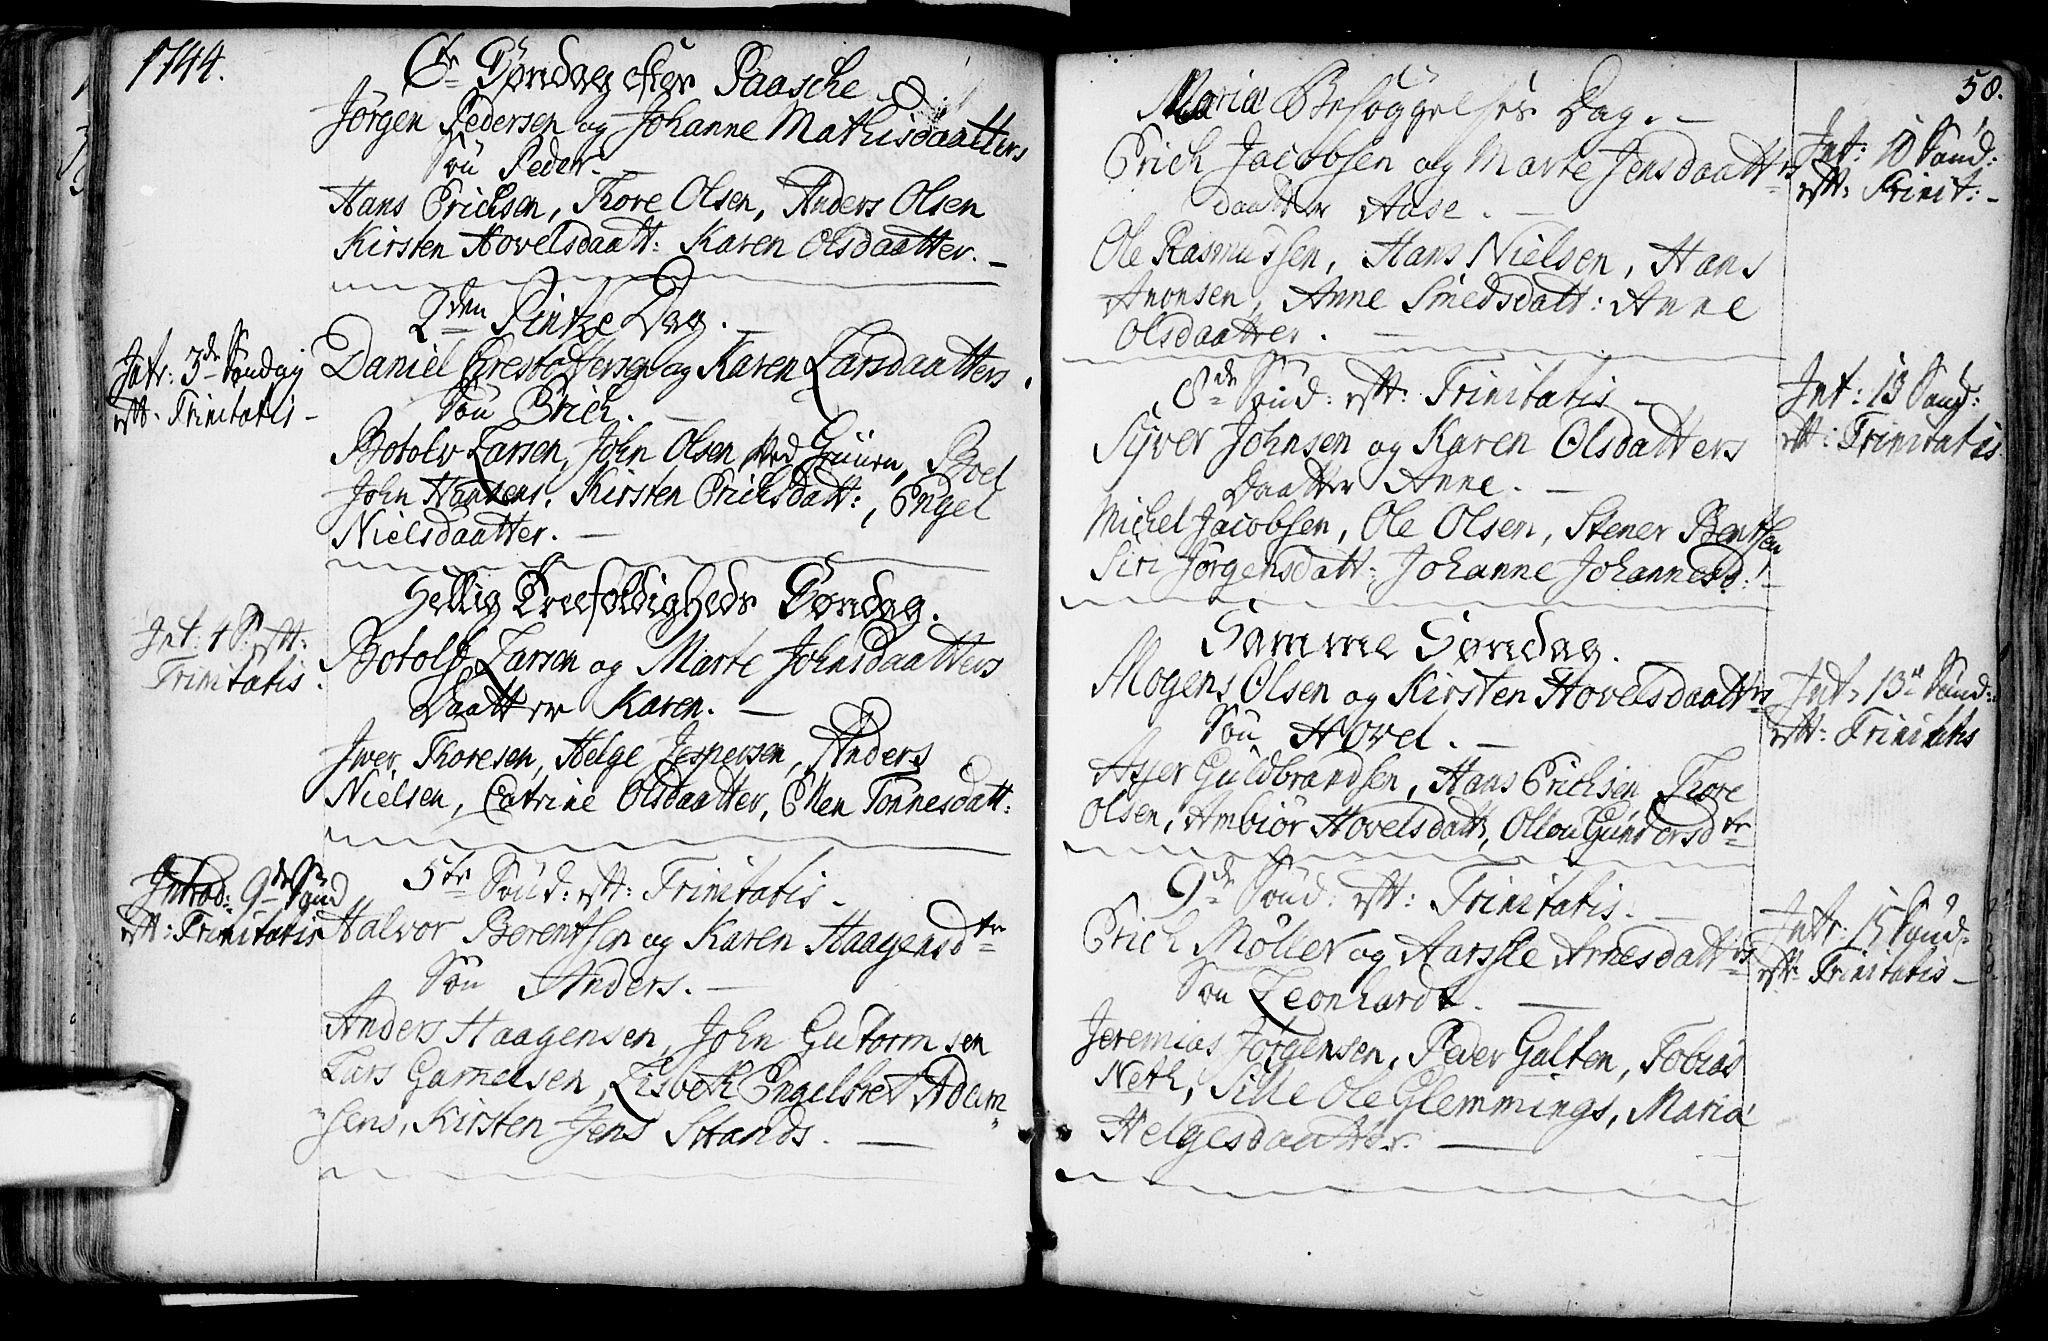 1744.
6te Søndag efter Paasche
Jørgen Pedersen og Johanne Mathisdaatters
Søn Peder.
Hans Erichsen, Thore Olsen, Anders Olsen
Kirsten Hovelsdaatt: Karen Olsdaatter.
2den Pintze Dag.
Intr: 3de Søndag
eft. Trinitatis
Daniel Christoffersen og Karen Larsdaatters
Søn Erich.
Botolv Larsen, John Olsen ved Gruuen, Boel
John Hansens, Kirsten Erichsdatt:, Engel
Nielsdaatter.
Hellig Treefoldigheds Søndag.
Int: 4 S. eft:
Trinitatis.
Botolf Larsen og Marte Johnsdaatters
Daatter Karen.
Iwer Thoresen, Helge Jespersen, Anders
Nielsen, Catrine Olsdaatter, Ellen Tonnesdatt:
5te Sønd: eft: Trinitatis.
Introd: 9de Sønd
eft: Trinitatis
Halvor Berentsen og Karen Haagensdtr
Søn Anders.
Anders Haagensen, John Gutormsen
Lars Gamelsen, Lisbeth Engelbret Adam
sens, Kirsten Jens Strands.
58.
Mariæ Besøggelses Dag.
Int: 10 Sønd:
eft: Trinit:
Erich Jacobsen og Marte Jensdaattrs
Daatter Aase.
Ole Rasmussen, Hans Nielsen, Hans
Anonsen, Anne Smedsdatt: Anne
Olsdaatter.
8de Sønd: eft: Trinitatis
Int: 13 Sønd:
eft: Trinitatis
Syver Johnsen og Karen Olsdatters
Daatter Anne.
Michel Jacobsen, Ole Olsen, Stener Bentsen
Siri Jørgensdatt: Johanne Johannesd:
Samme Søndag.
Int: 13de Sønd:
eft: Trinitatis
Mogens Olsen og Kirsten Hovelsdaattrs
Søn Hovel.
Ayer Guldbrandsen, Hans Erichsen, Thore
Olsen, Ambiør Hovelsdatt, Ollou Guttormsdtr
9de Sønd: eft: Trinitatis.
Intr: 15 Sønd:
eft: Trinitatis
Erich Møller og Aarssle Arnesdattrs
Søn Leonhardt.
Jeremias Jørgensen, Peder Galten, Tobias
Neth, Sille Ole Glemmings, Mariæ
Helgesdaatter.